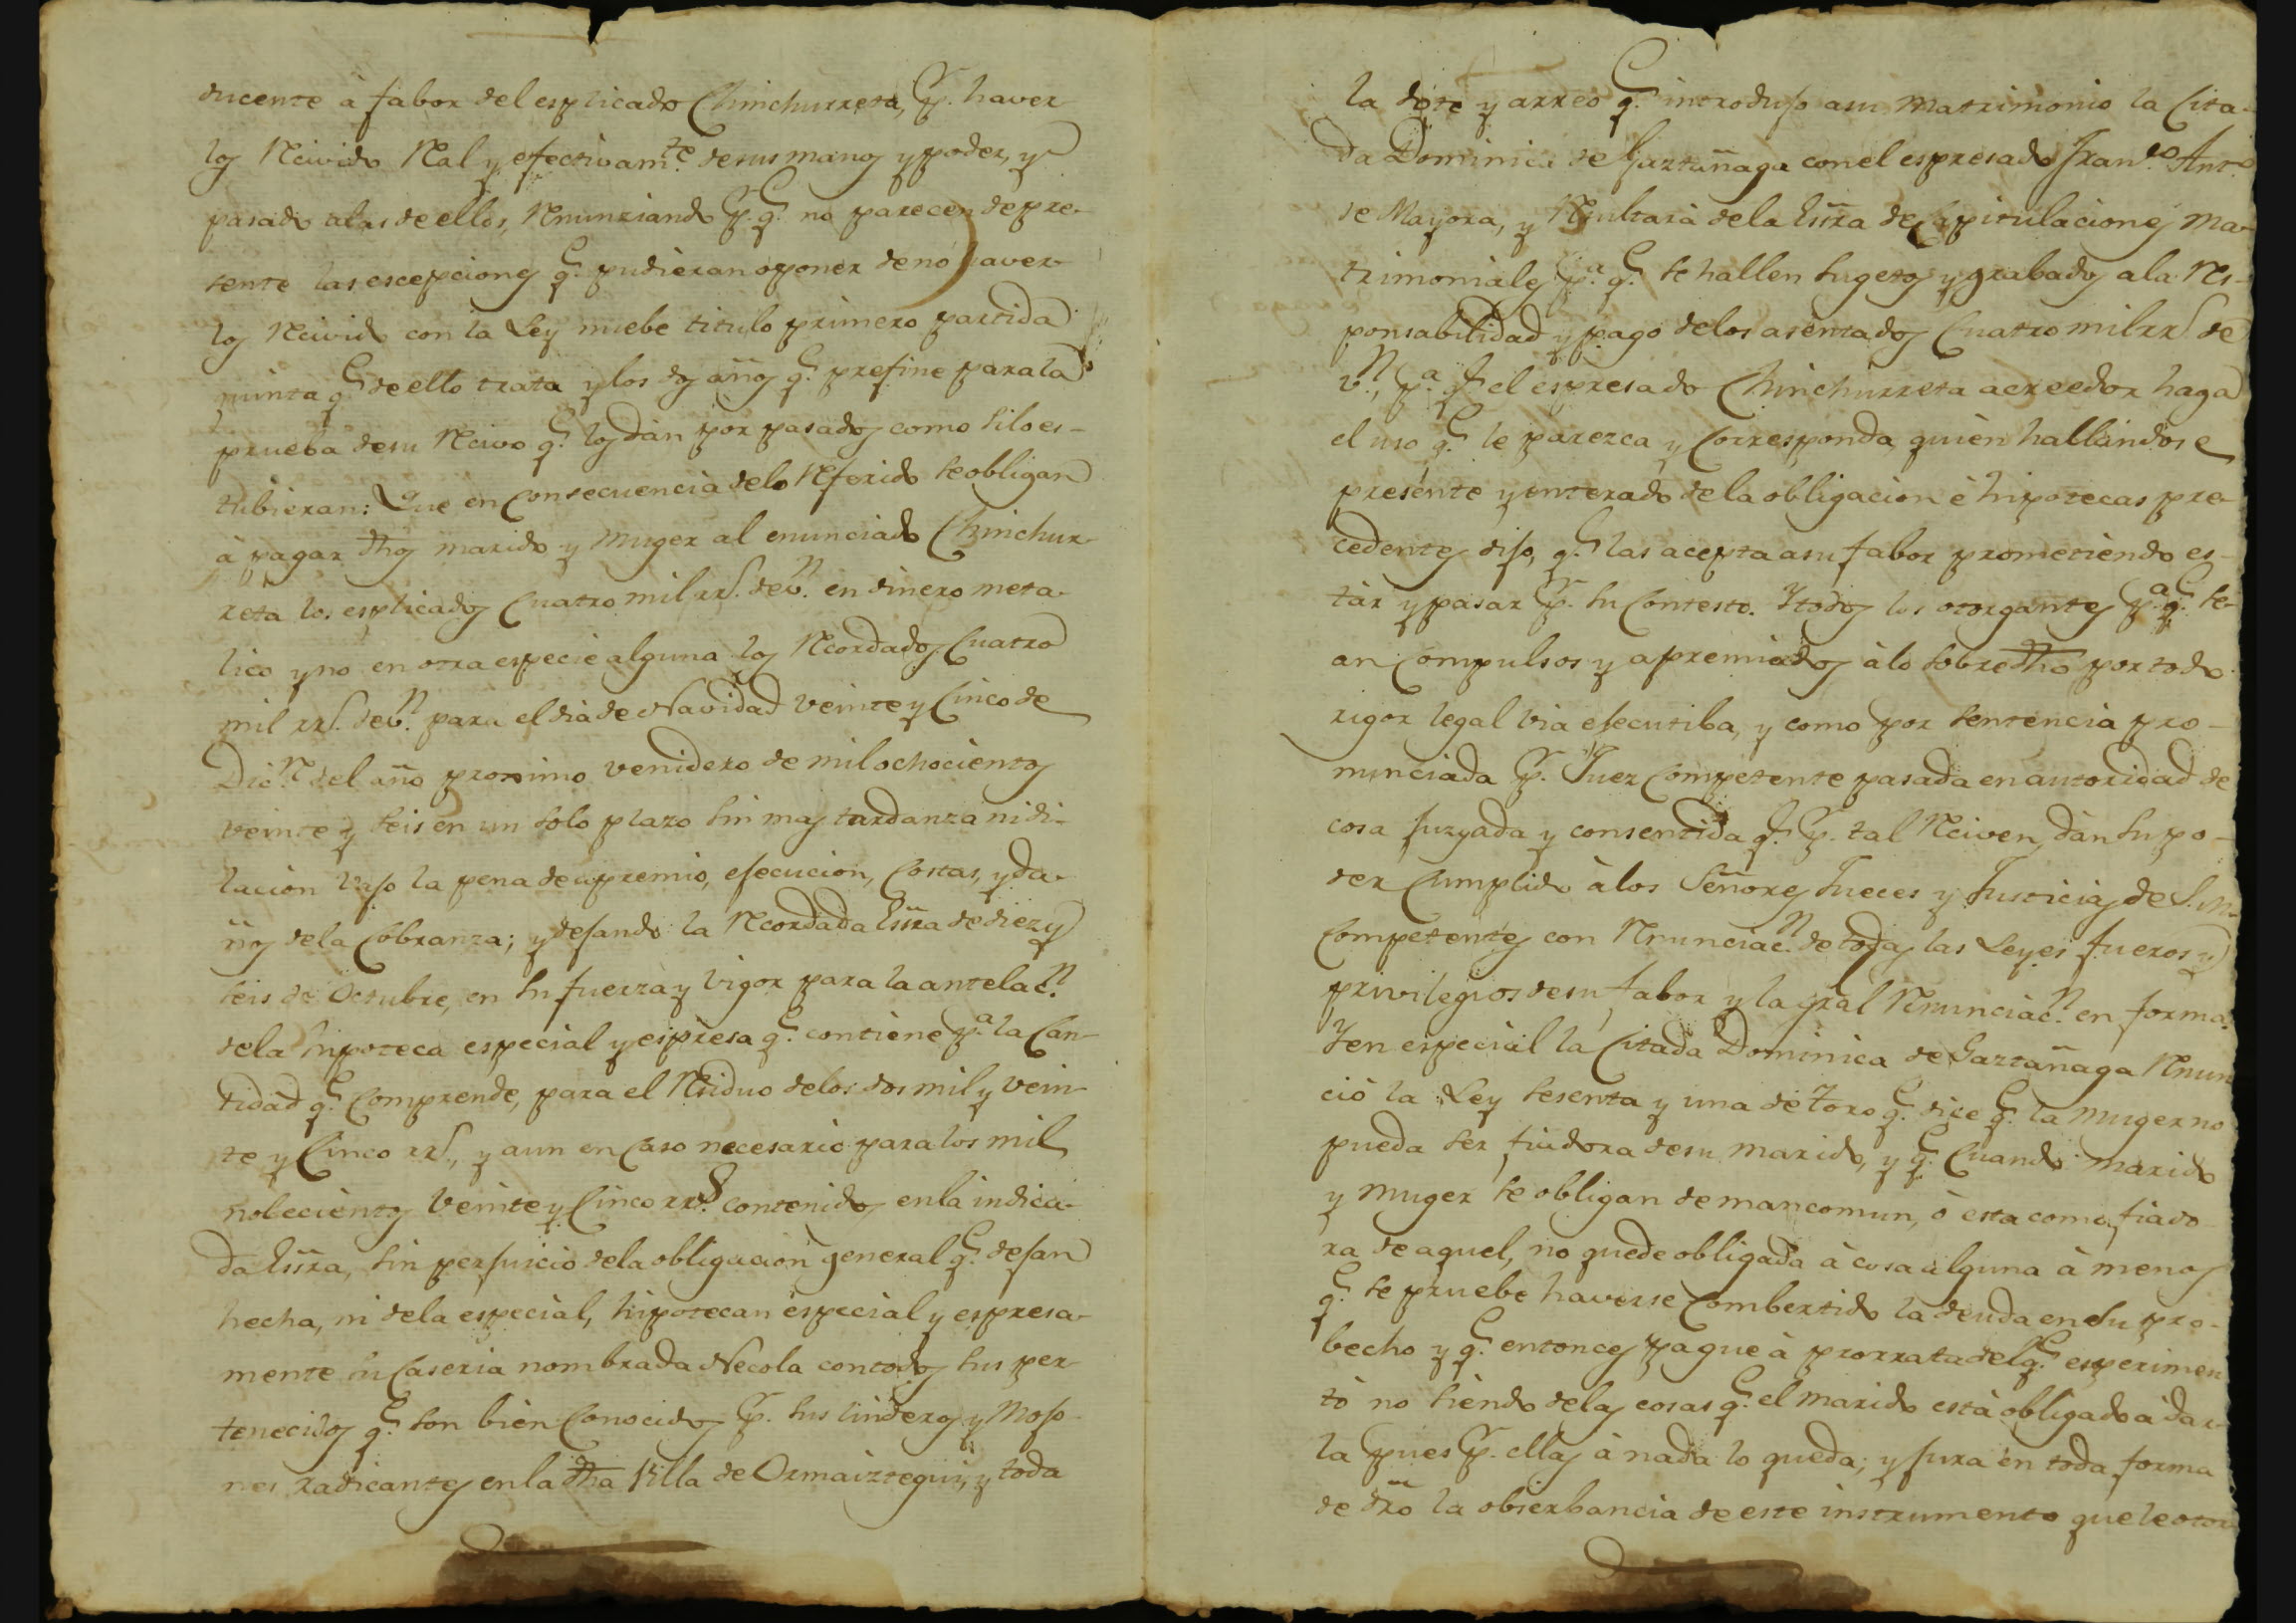 ducente à fabor del esplicado Chinchurreta, p.r haver
los Rcivido Real y efectivam.te de sus manos y poder, y
pasado alas de ellos, Rnunziando p.r q.e no parecen de pre-
sente las escepciones q.e pudieran oponer de no haver
los Rcivido con la Ley nuebe titulo primero partida
quinta q.e de ello trata y los dos años q.e prefine para la
prueba de su Rcivo q.e los dàn por pasados como silo es-
tubieran: Que en Consecuencia de lo Rferido se obligan
à pagar dhos marido y Muger al enunciado Chinchur-
reta los esplicados Cuatro mil rr.s de v.n en dinero meta-
lico y no en otra especie alguna los Rcordados Cuatro
mil rr.s de v.n para el dia de Navidad veinte y Cinco de
Dic.re del año proximo venidero de mil ochocientos
veinte y seis en un solo plazo sin mas tardanza ni di-
lacion bajo la pena de apremio, ejecucion, Costas, y da-
ños de la Cobranza; y dejando la Rcordada Essra de diez y
seis de Octubre, en su fuerza y vigor para la antelac.n
de la hipoteca especial y espresa q.e contiene p.a la Can-
tidad q.e Comprende, para el Rsiduo de los dos mil y vein-
te y Cinco rr.s, y aun en Caso necesario para los mil
nobecientos veinte y Cinco rr.s contenidos en la indica-
da Essra, sin perjuicio de la obligacion general q.e dejan
hecha, ni de la especial, hipotecan especial y espresa-
mente su Caseria nombrada Necola con todos sus per-
tenecidos q.e son bien Conocidos p.r sus linderos y Mojo-
nes radicantes en la dha Villa de Ormaiztegui, y toda
la dote y arreo q.e introdujo a su Matrimonio la Cita-
da Dominica de Gaztañaga con el espresado Fran.co Ant.o
de Mayora, y Rsultarà de la Essra de Capitulaciones Ma-
trimoniales p.a q.e se hallen sugetos y grabados a la Rs-
ponsabilidad y pago de los asentados Cuatro mil rr.s de
v.n, p.a q.e el espresado Chinchurreta acreedor haga
el uso q.e le parezca y Corresponda, quièn hallandose
presente y enterado de la obligacion è hipotecas pre-
cedentes dijo, q.e las acepta a su fabor prometiendo es-
tàr y pasar p.r su Contesto. Y todos los otorgantes p.a q.e se-
an Compulsos y apremiados à lo sobre dho por todo
rigor legal via ejecutiba, y como por sentencia pro-
nunciada p.r Juez Competente pasada en autoridad de
cosa juzgada y consentida q.e p.r tal Rciven, dàn su po-
der Cumplido à los Señores Jueces y Justicias de S.M.
Competentes con Rnunciac.n de todas las Leyes fueros y
privilegios de su fabor y la gral Rnunciac.n en forma.
Y en especial la Citada Dominica de Gaztañaga Rnun
ciò la Ley sesenta y una de Toro q.e dice q.e la Muger no
pueda ser fiadora de su marido, y q.e Cuando marido
y Muger se obligan de mancomun, ò esta como fiado-
ra de aquel, no quede obligada à cosa alguna à menos
q.e se pruebe haverse Combertido la deuda en su pro-
becho y q.e entonces pague à prorrata del q.e esperimen
tò no siendo de las cosas q.e el marido està obligado à dar-
la pues p.r ellas à nada lo queda; y jura en toda forma
de dro la obserbancia de este instrumento que le otor